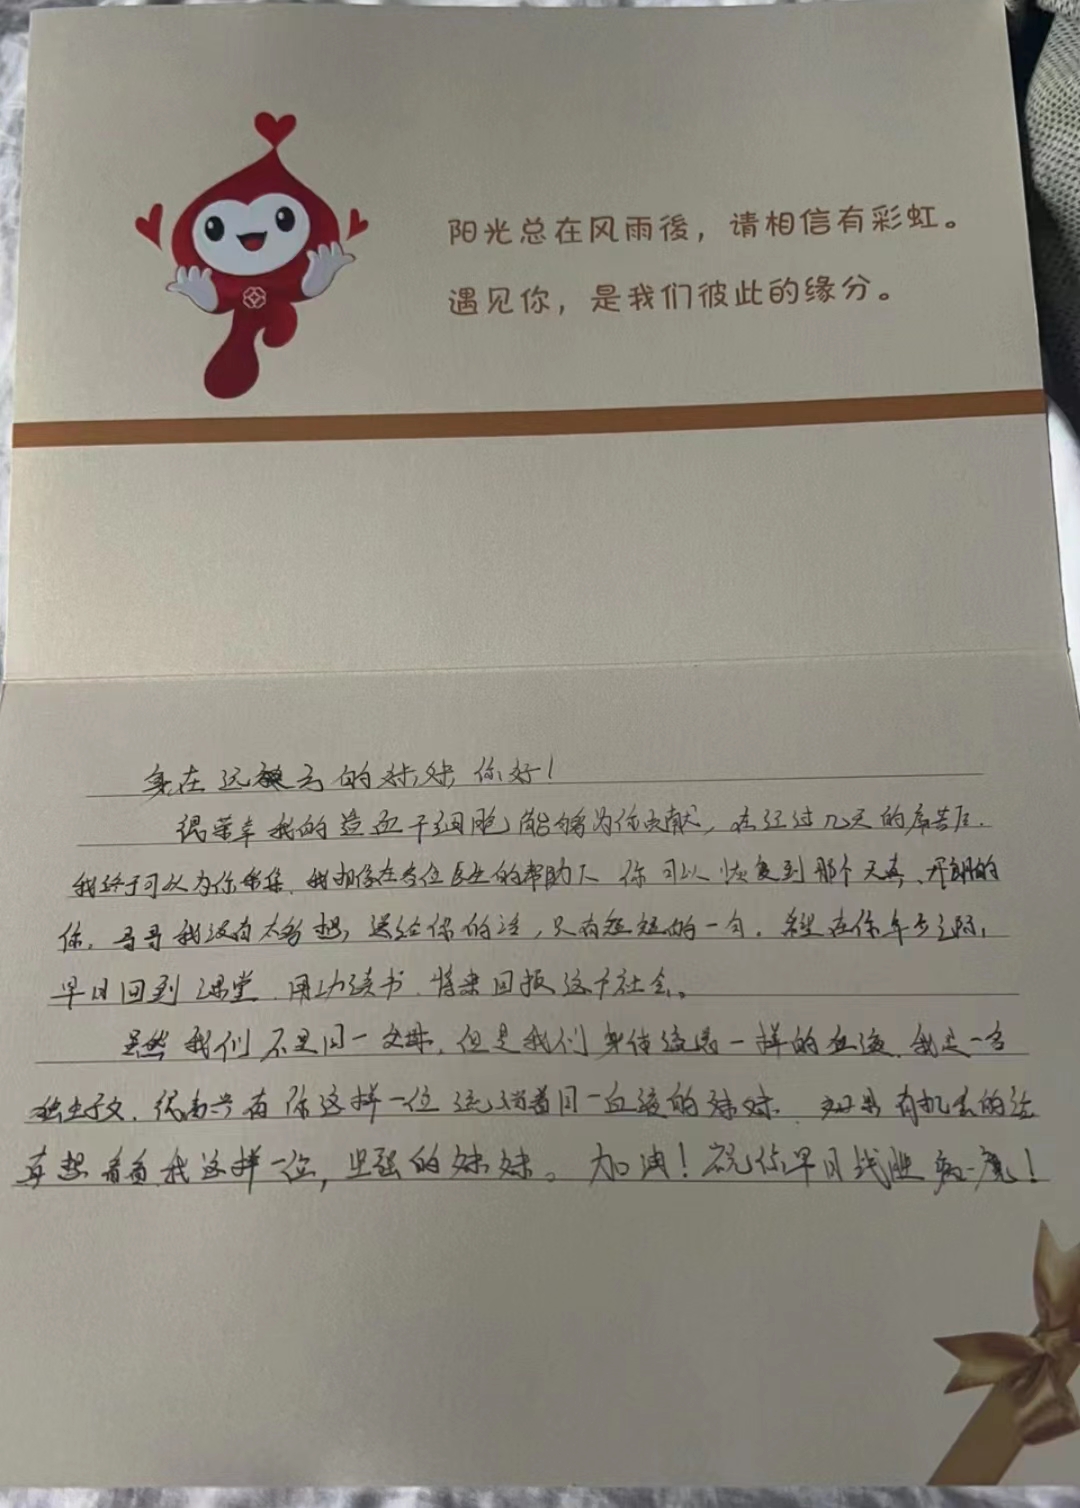 阳光总在风雨後，请相信有彩虹。
遇见你，是我们彼此的缘分。
身在远方的妹妹，你好！
很荣幸我的造血干细胞能够为你贡献，在经过几天的
我终于可以为你采集，我相信在各位医生的帮助下 你可以恢复到那个天真、开朗的
你，哥哥我没有太多想，送给你的话，只有短短的一句，希望在你年少之际，
早日回到课堂，用功读书，将来回报这个社会。
虽然我们不是同一父母，但是我们身体流着一样的血液，我是一名
独生子女，很高兴有你这样一位流淌着同一血液的妹妹，如果有机会的话
真想看看我这样一位，坚强的妹妹。加油！祝你早日战胜病魔！